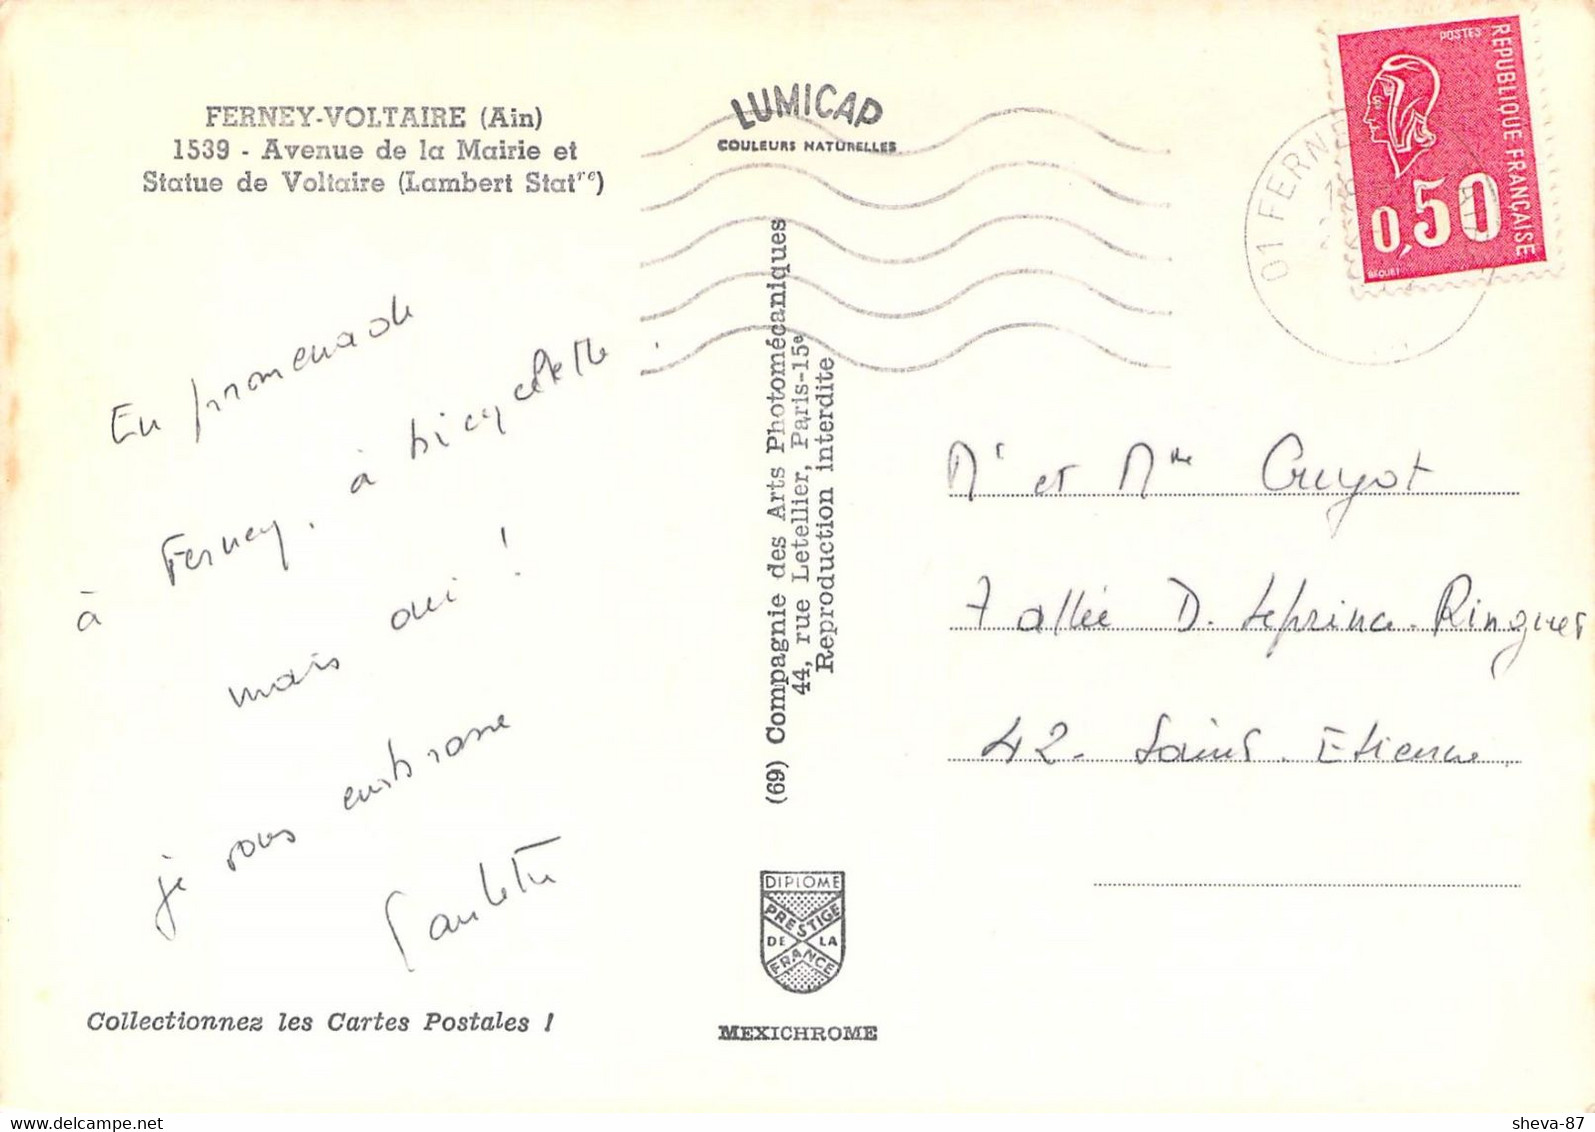 FERNEY-VOLTAIRE (Ain)
1539 - Avenue de la Mairie et
Statue de Voltaire (Lambert Statre)
LUMICAP
COULEURS NATURELLES
POSTES
REPUBLIQUE FRANÇAISE
0,50
BEQUET
01 FERNEY
En promenade
à Ferney, à bicyclette.
mais oui !
je vous embrasse
Paulette
(69) Compagnie des Arts Photomécaniques
44, rue Letellier, Paris-15e
Reproduction interdite
Mr et Mme Guyot
7 allée D. Leprince-Ringuet
42. Saint. Etienne.
DIPLOME
PRESTIGE
DE LA
FRANCE
MEXICHROME
Collectionnez les Cartes Postales !
sheva-87